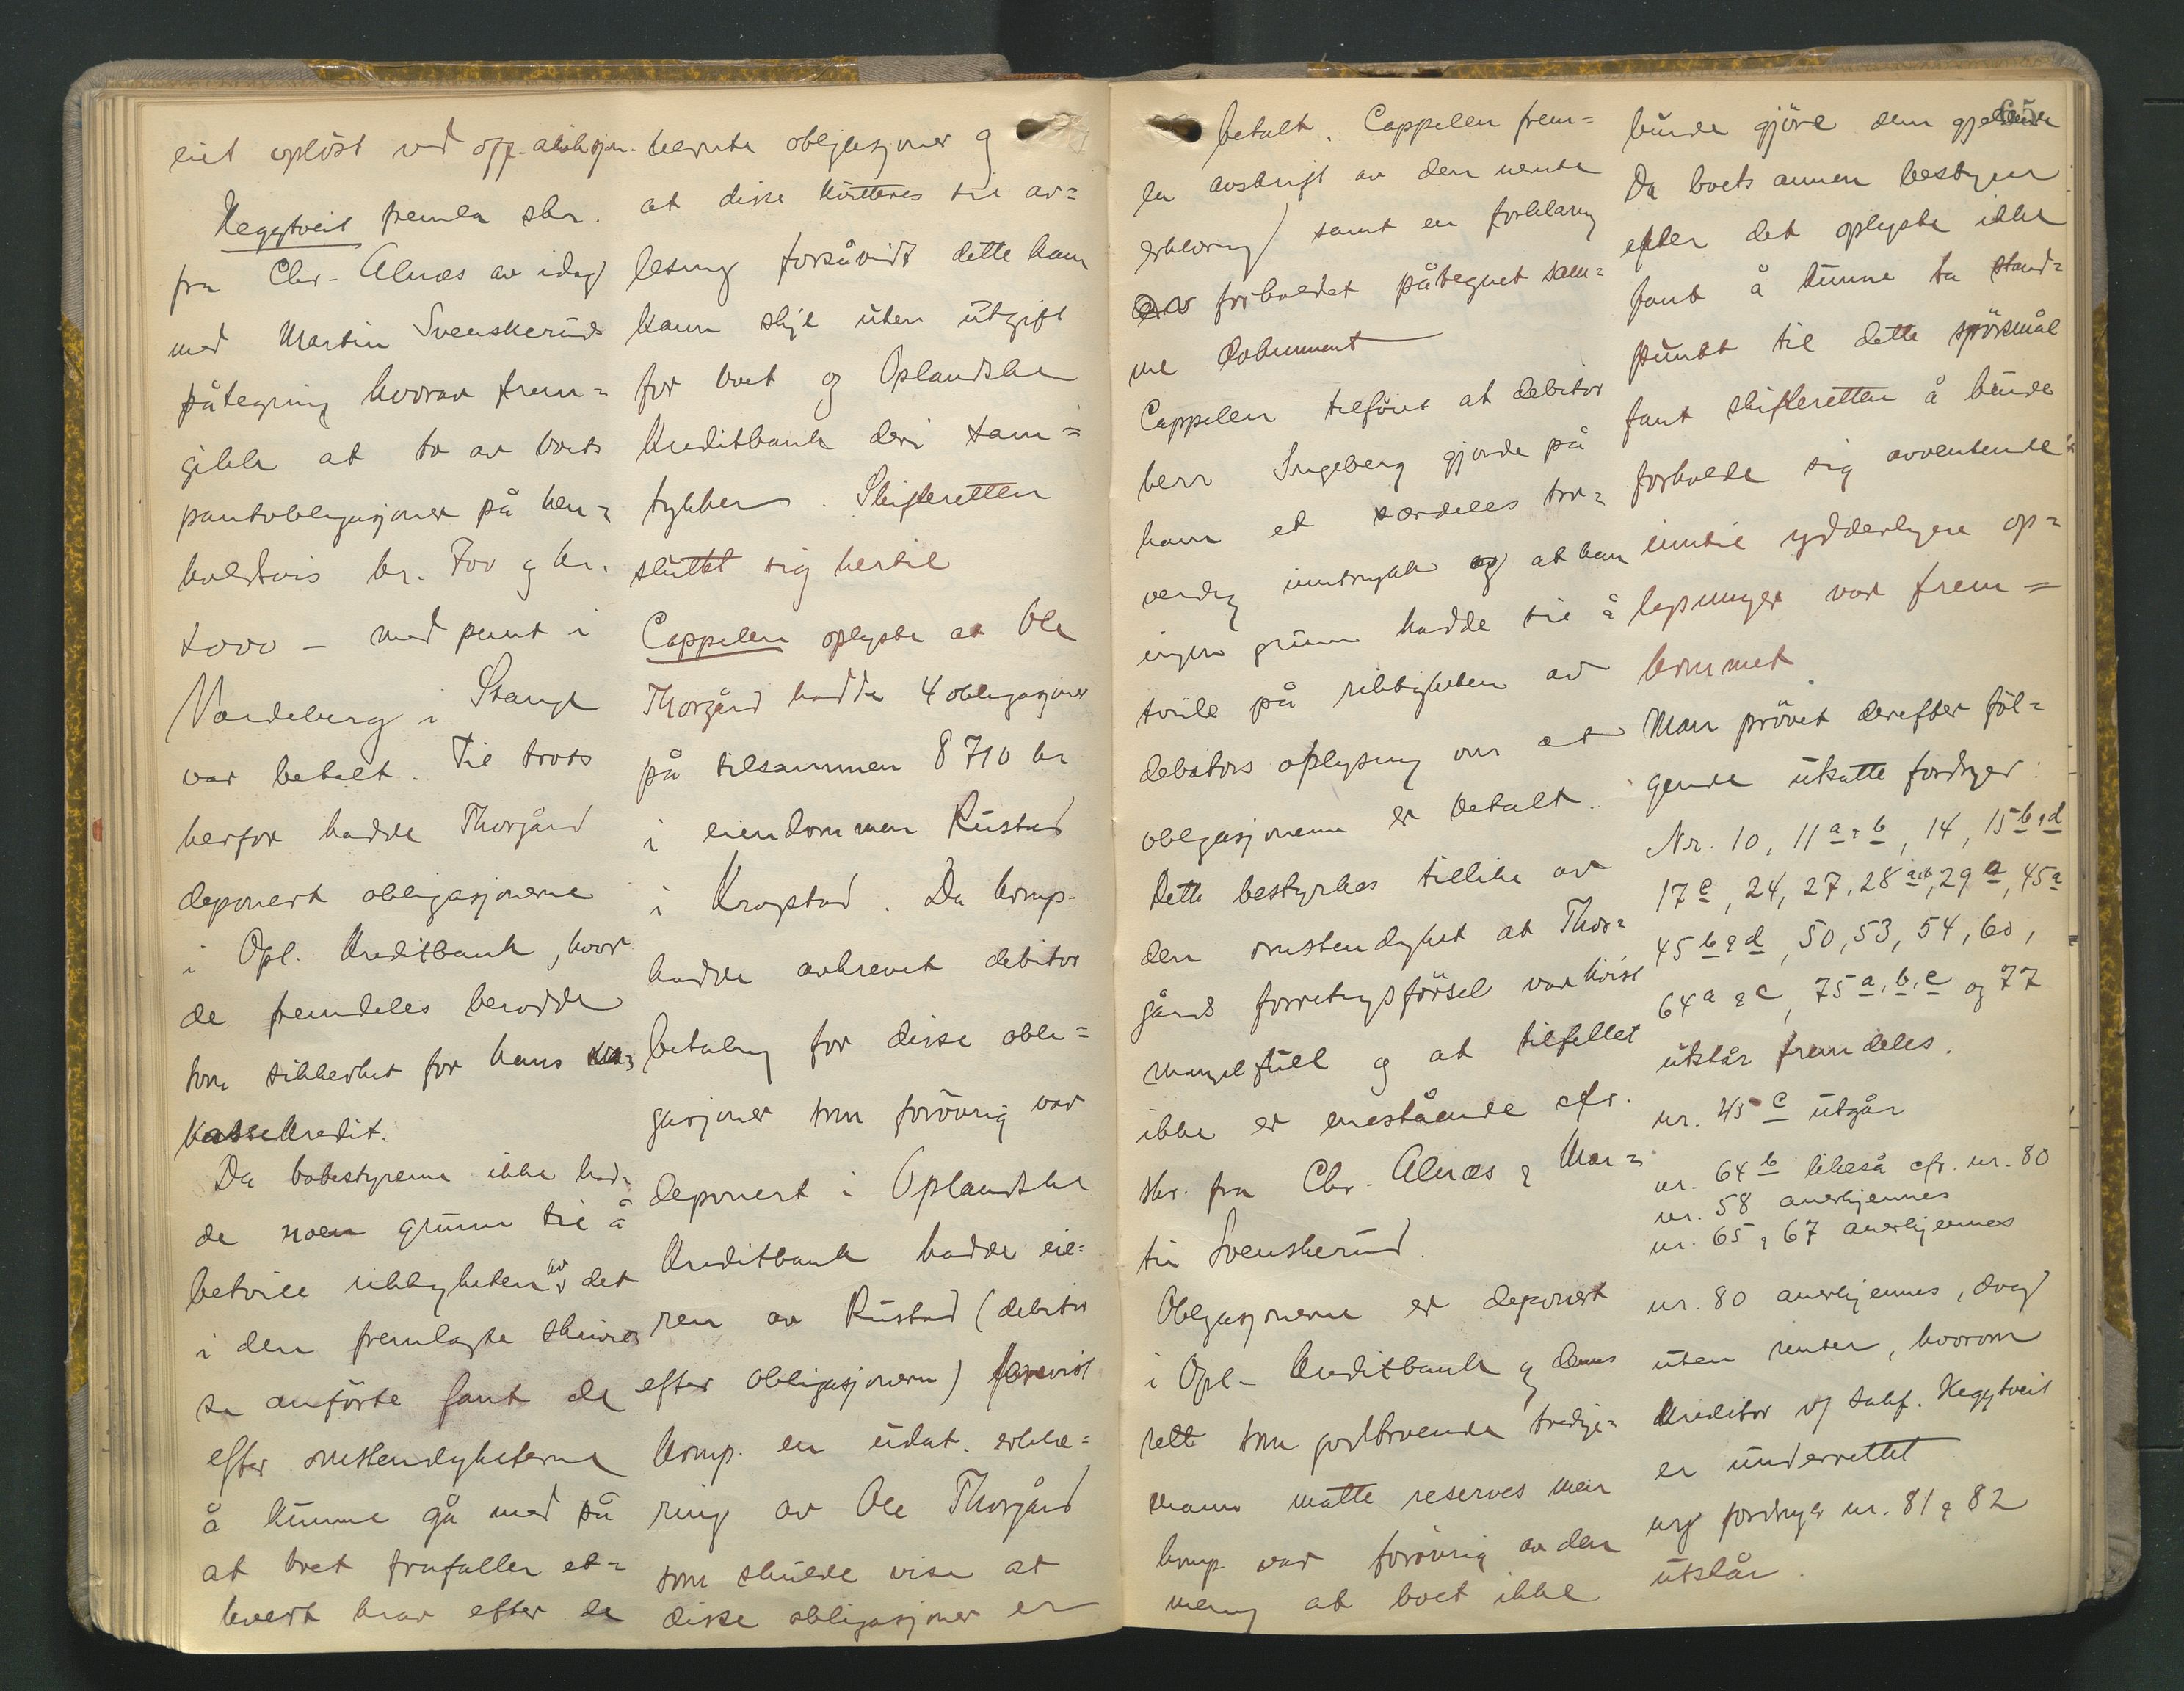 eiet oplöst ved opp. auksjon.
Heggtveit fremla skr.
fra Chr. Alnæs av idag
med Martin Svenskeruds
påtegning hvorav frem=
gikk at to av boets
pantobligasjoner på hen=
holdsvis kr. 700 og kr.
1000 – med pant i
Vardeberg i Stange
var betalt. Til tross
herfor hadde Thorgård
deponert obligasjonerne
i Opl. Kreditbank, hvor
de fremdeles berodde
som sikkerhet for hans
Kassekredit.
Da bobestyrerne ikke had=
de noen grunn til å
betvile riktigheten av det
i den fremlagte skrivel
se anförte fant de
efter omstendigheterne
å kunne gå med på
at boet frafaller et=
hvert krav efter de
nevnte obligasjoner og
at disse kvitteres til av=
lesning forsåvidt dette kan
kann skje uten utgift
for boet og Oplandske
Kreditbank deri sam=
tykker. Skifteretten
sluttet sig hertil
Cappelen oplyste at Ole
Thorgård hadde 4 obligasjoner
på tilsammen 8710 kr
i eiendommen Rustad
i Kragstad. Da komp.
hadde avkrevet debitor
betaling for disse obli=
gasjoner som forövrig var
deponert i Oplandske
Kreditbank hadde eie=
ren av Rustad (debitor
efter obligasjonerne) forevist
komp. en udat. erklæ=
ring av Ole Thorgård
som skulde vise at
disse obligasjoner er
betalt. Cappelen frem=
la avskrift av den nevnte
erklæring samt en forklaring
av forholdet påtegnet sam=
me dokument
Cappelen tilföiet at debitor
herr Ingeberg gjorde på
ham et særdeles tro=
verdig inntrykk og at han
ingen grunn hadde til å
tvile på riktigheten av
debitors oplysning om at
obligasjonerne er betalt.
Dette bestyrkes tillike av
den omstendighet at Thor=
gårds forretningsförsel var höist
mangelfull og at tilfellet
ikke er enestående cfr.
skr. fra Chr. Alnæs & Mar=
tin Svenskerud.
Obligasjonerne er deponert
i Opl. Kreditbank og dennes
rett som godtroende tredje=
mann måtte reserves men
komp. var forövrig av den
mening at boet ikke
burde gjöre dem gjeldende
Da boets annen bestyrer
efter det oplyste ikke
fant å kunne ta stand=
punkt til dette spörsmål
fant skifteretten å burde
forholde sig avventende
inntil ydderligere op=
lysninger var frem=
kommet.
Man prövet derefter föl=
gende utsatte fordringer:
Nr. 10, 11 a & b, 14, 15 b & d
17 c, 24, 27, 28 a & b, 29 a, 45 a
45 b & d, 50, 53, 54, 60,
64 a & c, 75 a, b, c og 77
utstår fremdeles.
nr. 45 c utgår
nr. 64 b likeså cfr. nr. 80
nr. 58 anerkjennes
nr. 65 & 67 anerkjennes
nr. 80 anerkjennes, dog
uten renter, hvorom
kreditor v/ sakf. Heggtveit
er underrettet
fordringer nr. 81 & 82
utstår.